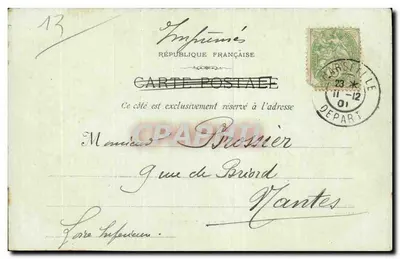 13
Imprimés
RÉPUBLIQUE FRANÇAISE
CARTE POSTALE
Ce côté est exclusivement réservé à l'adresse
MARSEILLE
23
11-12
01
DEPART
Monsieur Bressier
9 rue de Briord
Nantes
Loire Inférieure